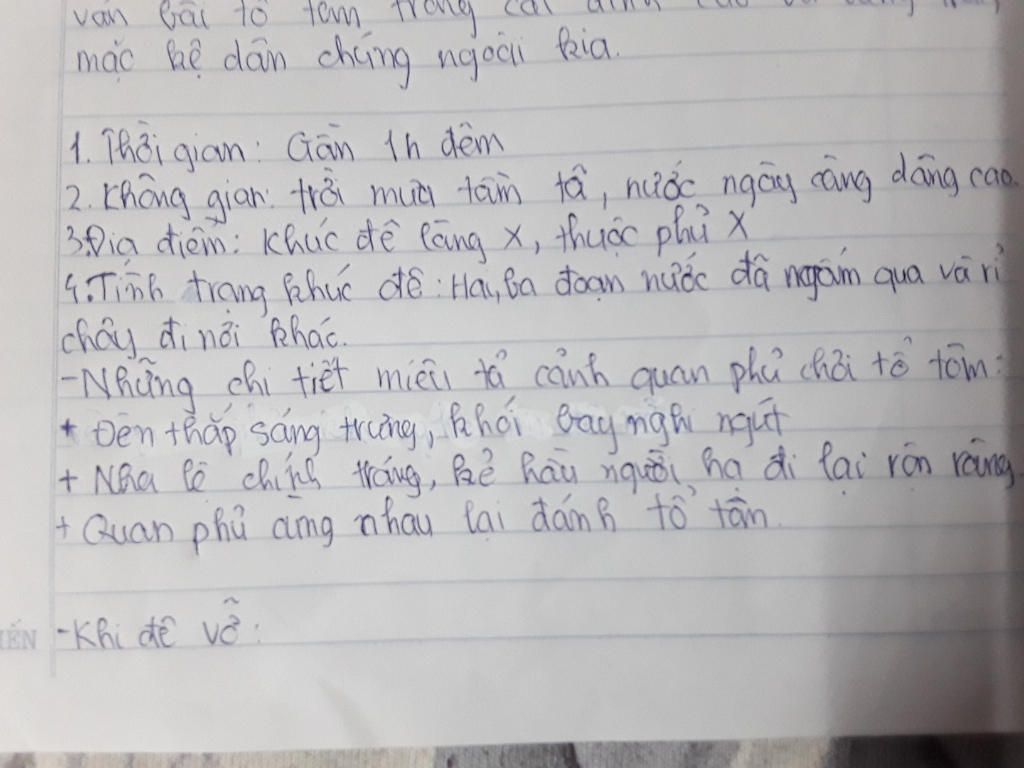 ván bài tổ tôm trong cái đình
mặc kệ dân chúng ngoài kia.
1. Thời gian: Gần 1h đêm
2. Không gian: trời mưa tầm tã, nước ngày càng dâng cao.
3. Địa điểm: Khúc đê làng X, thuộc phủ X
4. Tình trạng khúc đê: Hai, ba đoạn nước đã ngấm qua và rỉ
chảy đi nơi khác.
- Những chi tiết miêu tả cảnh quan phủ chơi tổ tôm:
+ Đèn thắp sáng trưng, khói bay nghi ngút
+ Nha lệ chỉnh tráng, kẻ hầu người hạ đi lại rộn ràng.
+ Quan phủ cùng nhau lại đánh tổ tôm.
- Khi đê vỡ:
IẾN